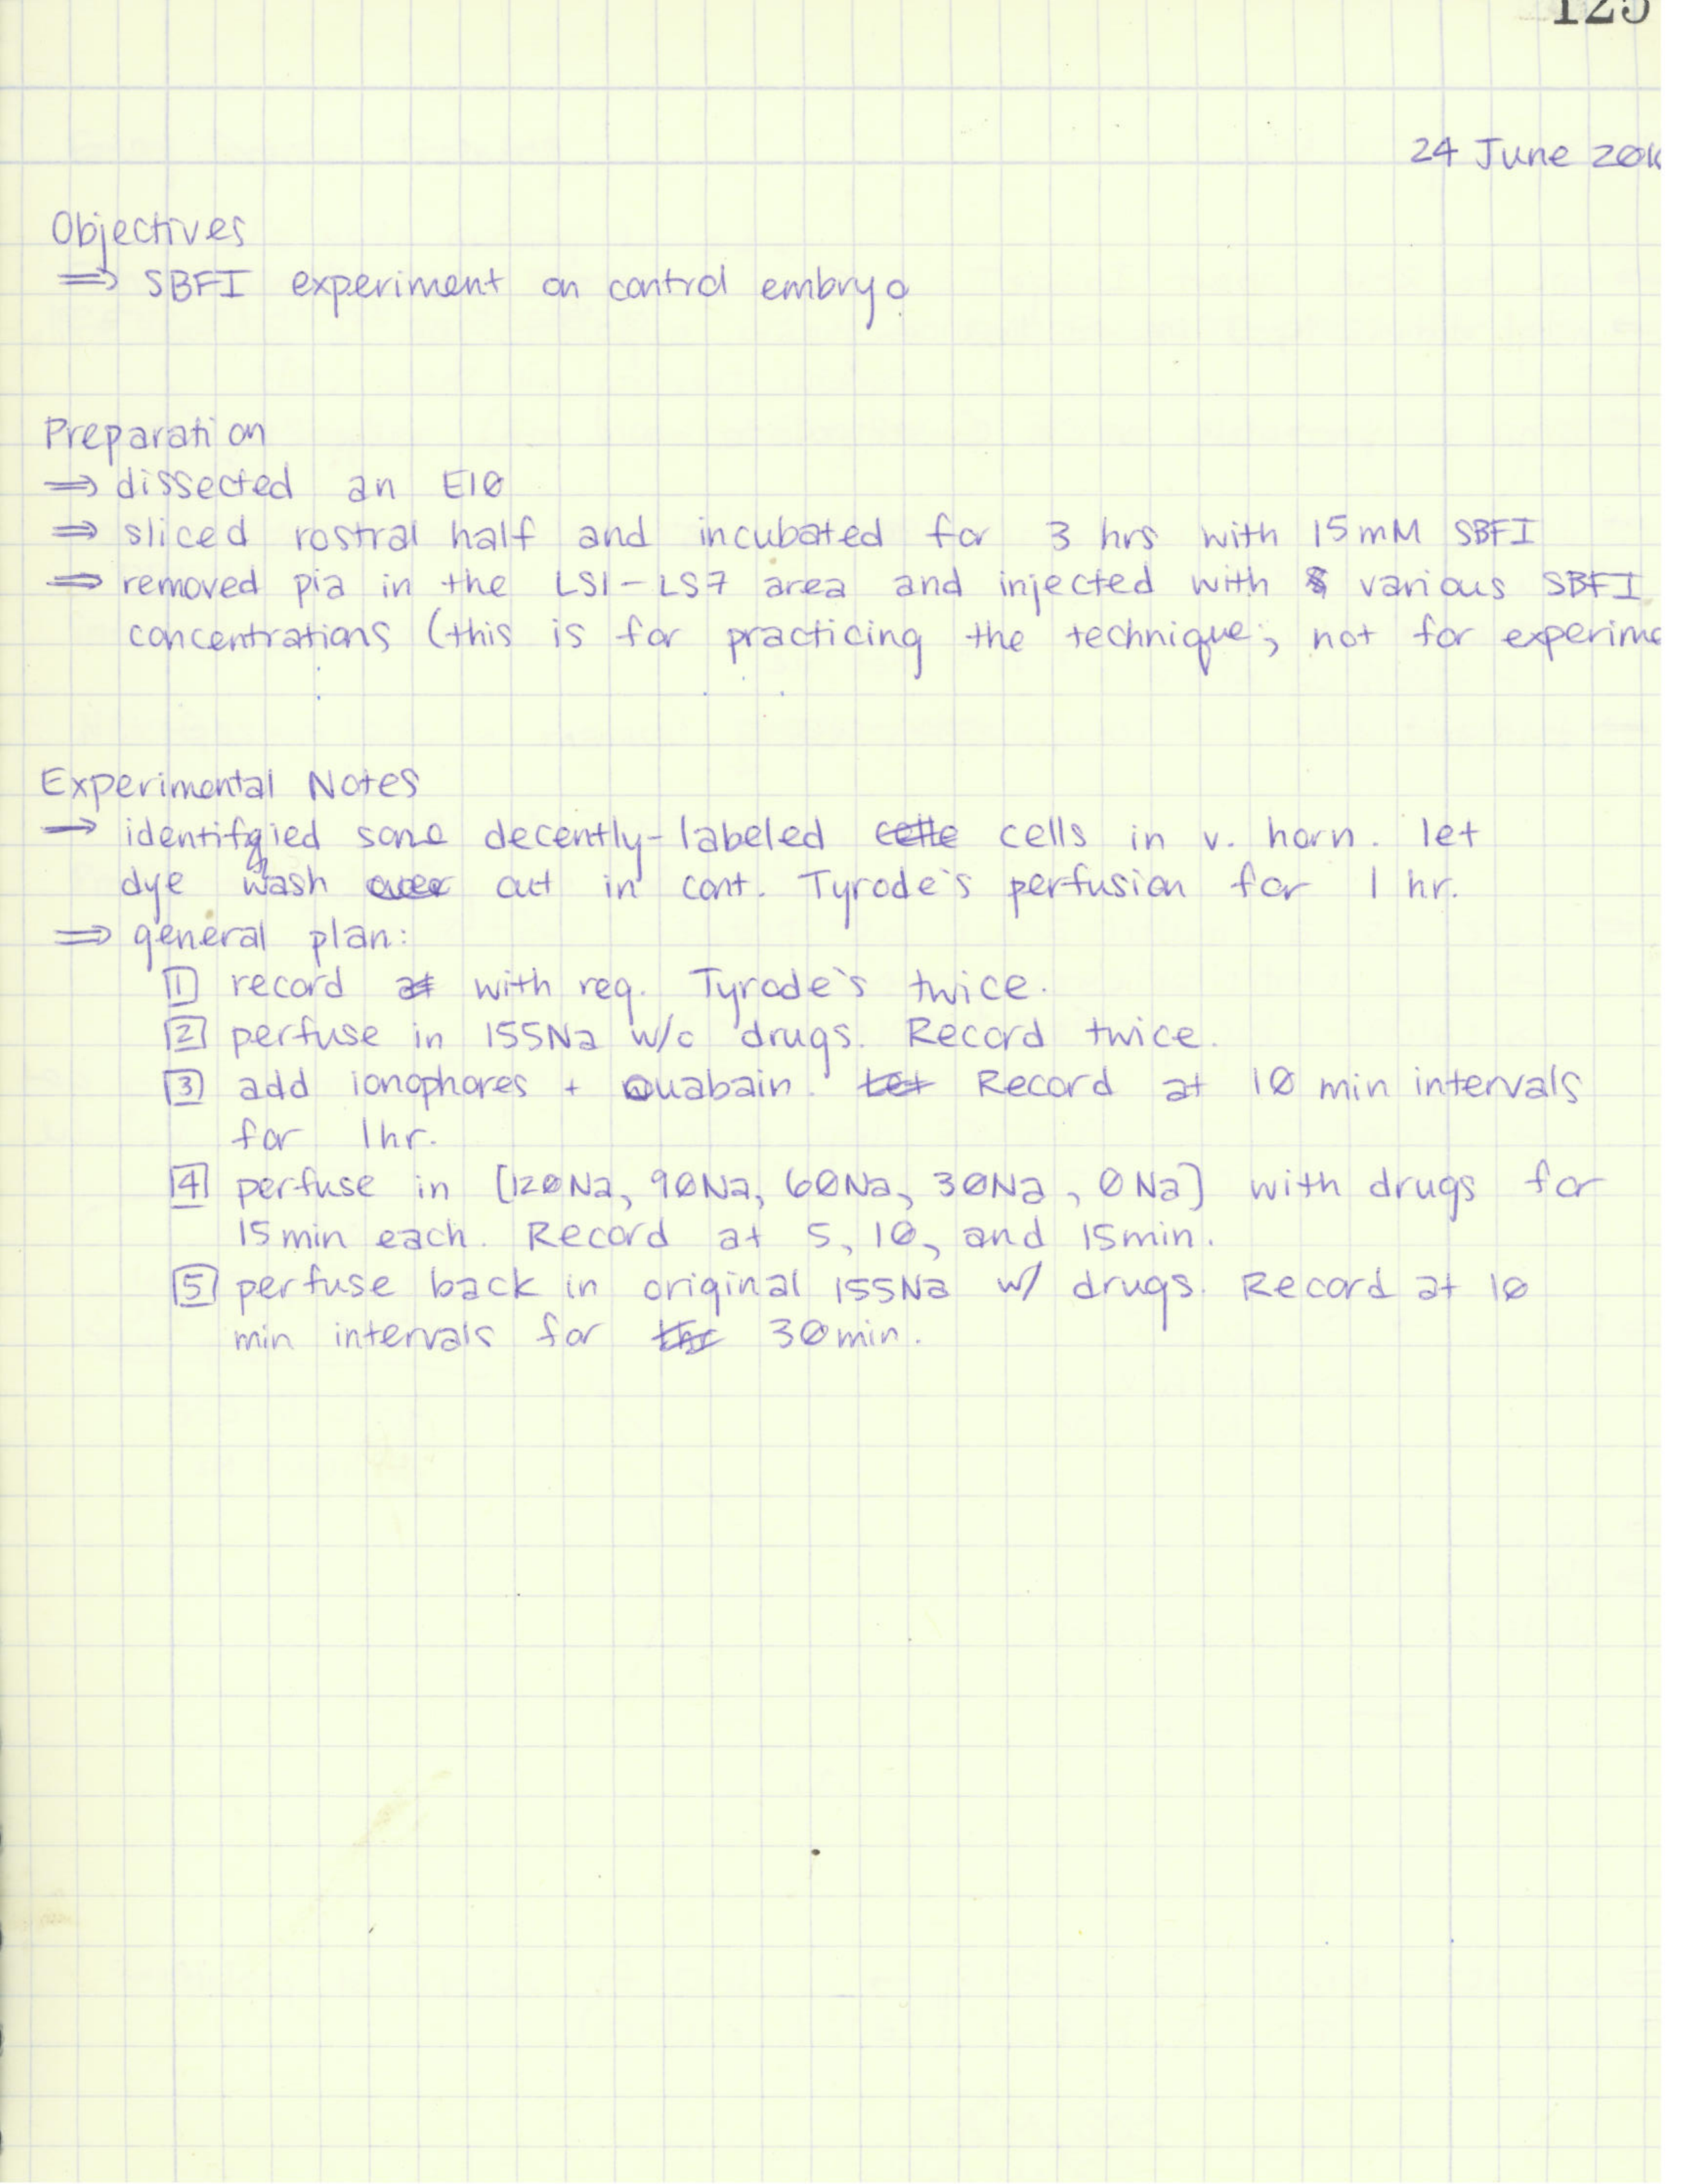 125
24 June 20
Objectives
⇒ SBFI experiment on control embryo
Preparation
⇒ dissected an E10
⇒ sliced rostral half and incubated for 3 hrs with 15mM SBFI
⇒ removed pia in the LS1-LS7 area and injected with various SBFI
concentrations (this is for practicing the technique; not for experime
Experimental Notes
→ identifgied some decently-labeled cells in v. horn. let
dye wash out in cont. Tyrode's perfusion for 1 hr.
⇒ general plan:
1 record with reg. Tyrode's twice.
2 perfuse in 155Na w/o drugs. Record twice.
3 add ionophores + Ouabain. Record at 10 min intervals
for 1hr.
4 perfuse in [120Na, 90Na, 60Na, 30Na, 0Na] with drugs for
15min each. Record at 5, 10, and 15min.
5 perfuse back in original 155Na w/ drugs. Record at 10
min intervals for 30min.